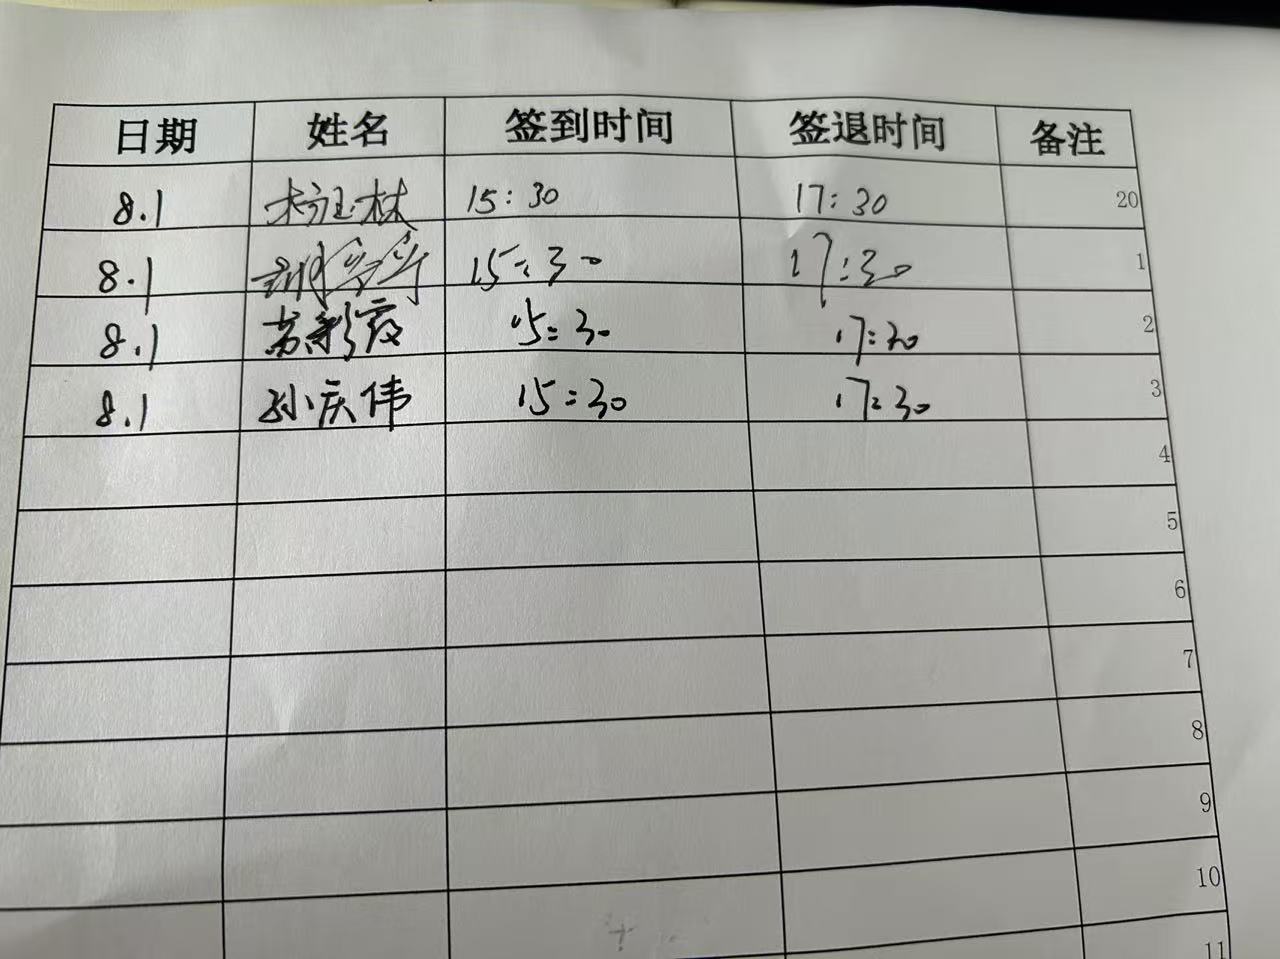 日期 姓名 签到时间 签退时间 备注
8.1 15:30 17:30 20
8.1 15:30 17:30 1
8.1 苏彩霞 15:30 17:30 2
8.1 孙庆伟 15:30 17:30 3
4
5
6
7
8
9
10
11